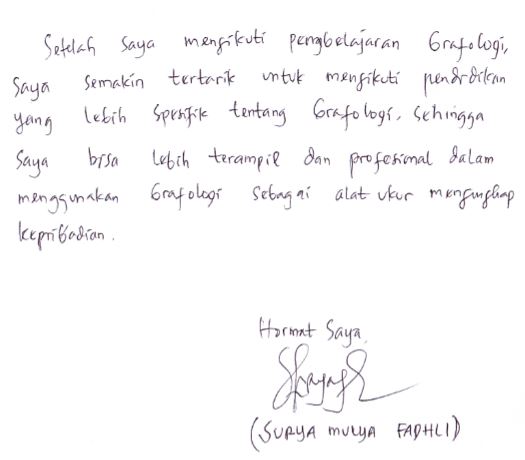 Setelah saya mengikuti pengbelajaran Grafologi,
saya semakin tertarik untuk mengikuti pendidikan
yang lebih spesifik tentang Grafologi, sehingga
saya bisa lebih terampil dan profesional dalam
menggunakan Grafologi sebagai alat ukur mengungkap
kepribadian.
Hormat Saya,
(SURYA MULYA FADHLI)